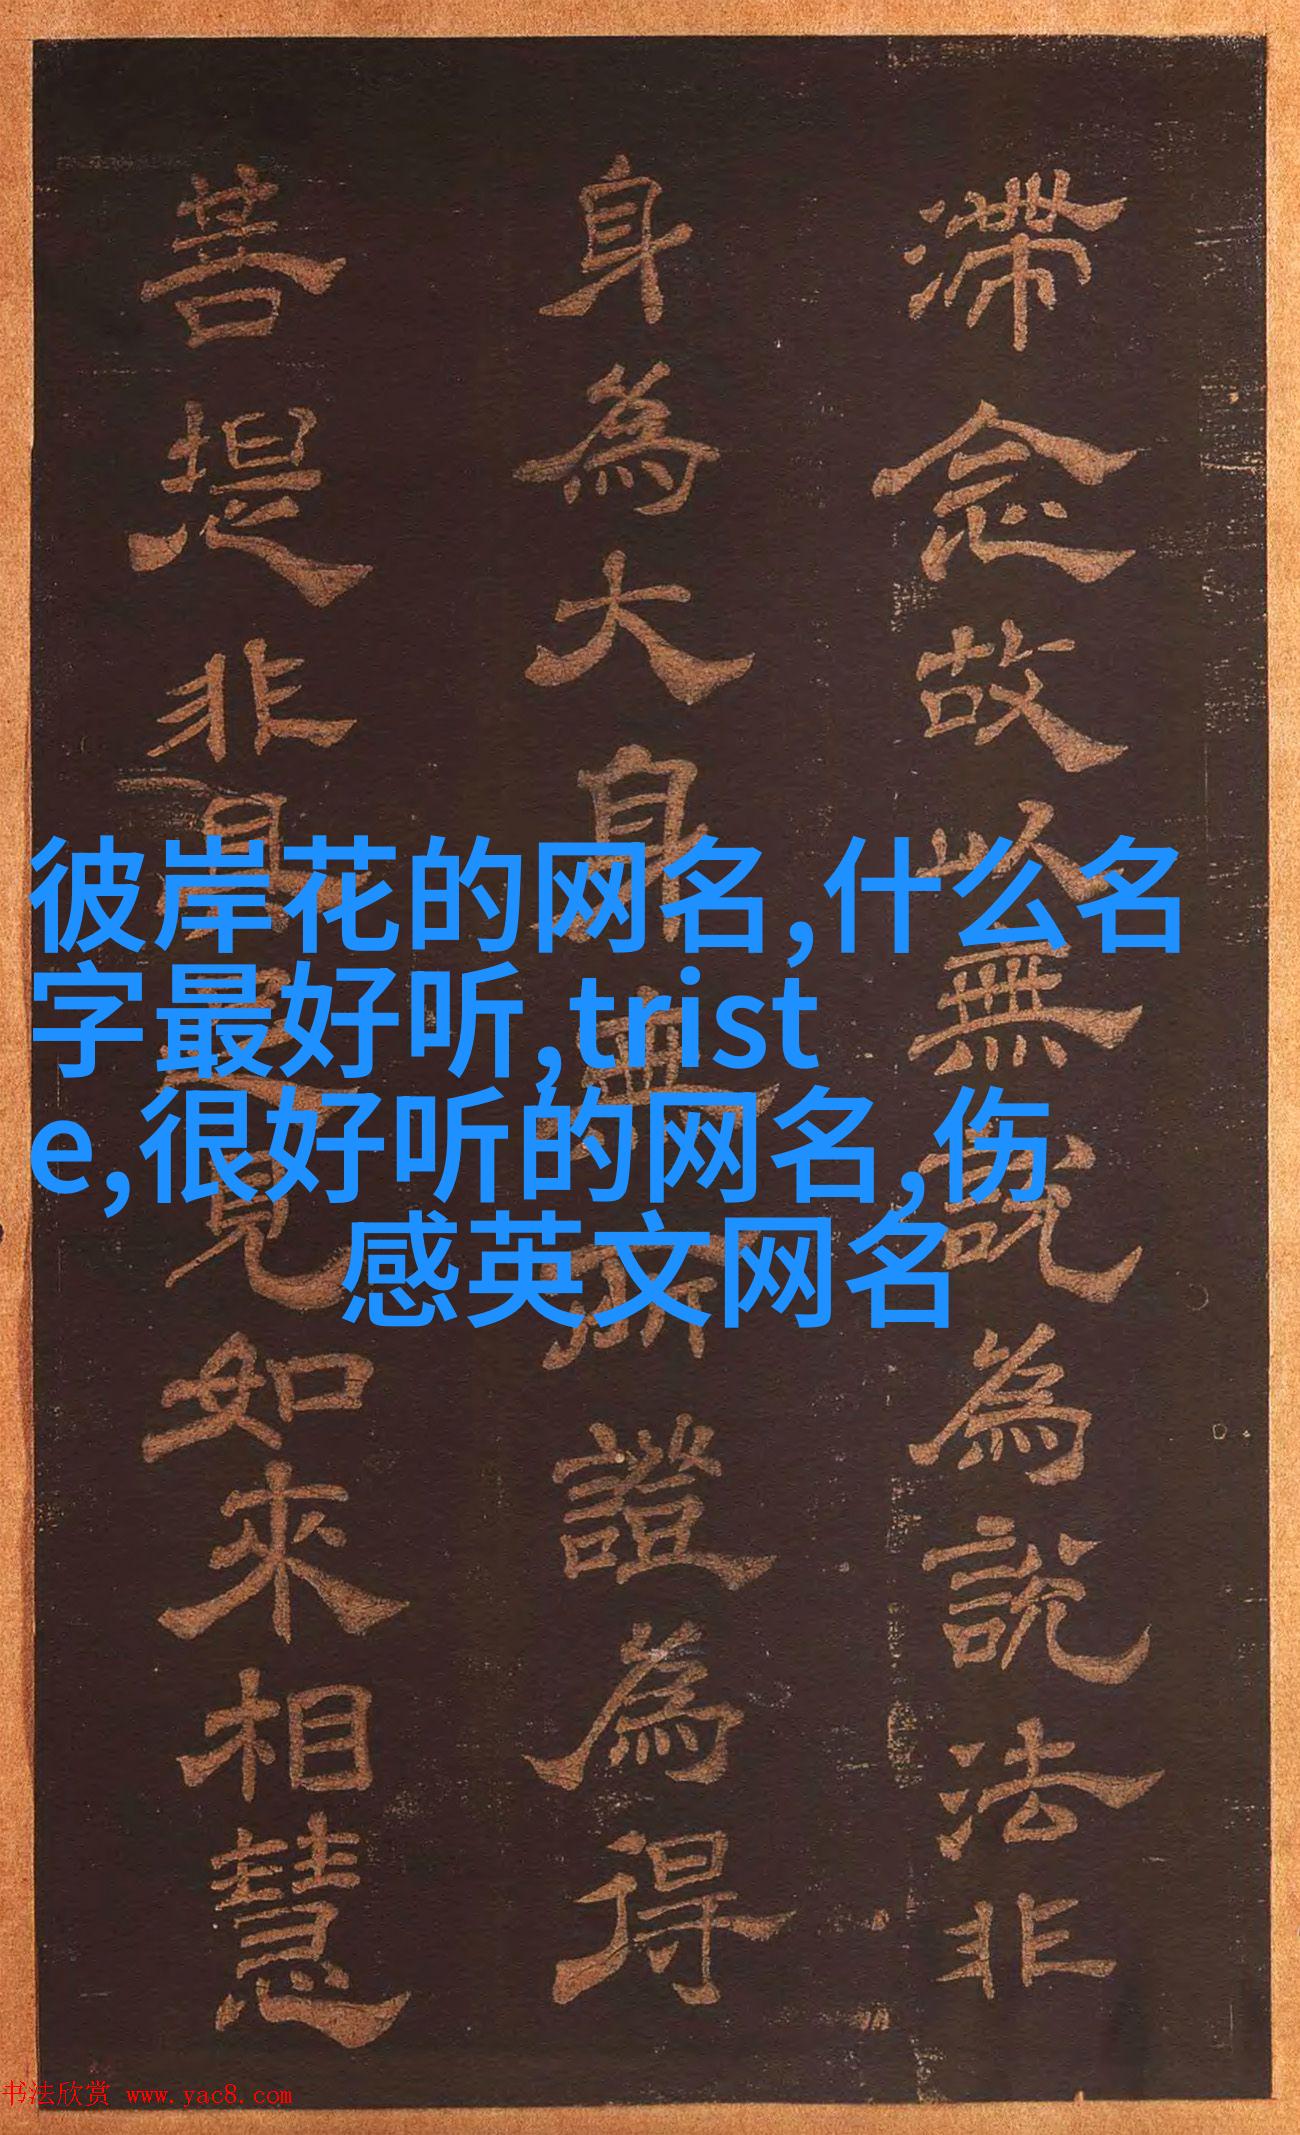 滯念故以無說為說法非
身為大身無所證為得
菩提非具足見如來相慧
彼岸花的网名,什么名
字最好听,trist
e,很好听的网名,伤
感英文网名
书法欣赏 www.yac8.com